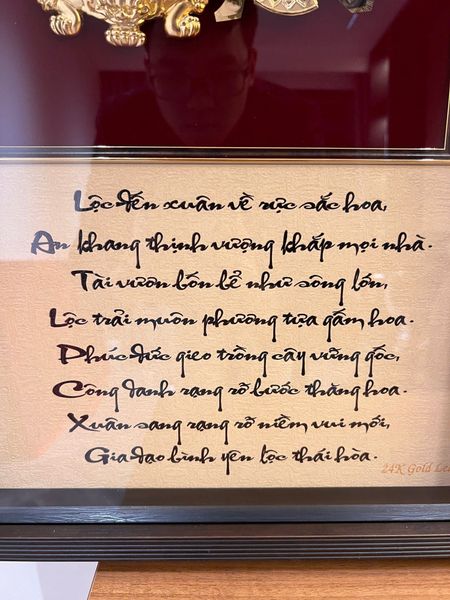 Lộc đến xuân về rực sắc hoa,
An khang thịnh vượng khắp mọi nhà.
Tài vươn bốn bể như sông lớn,
Lộc trải muôn phương tựa gấm hoa.
Phúc đức gieo trồng cây vững gốc,
Công danh rạng rỡ bước thăng hoa.
Xuân sang rạng rỡ niềm vui mới,
Gia đạo bình yên lộc thái hòa.
24K Gold